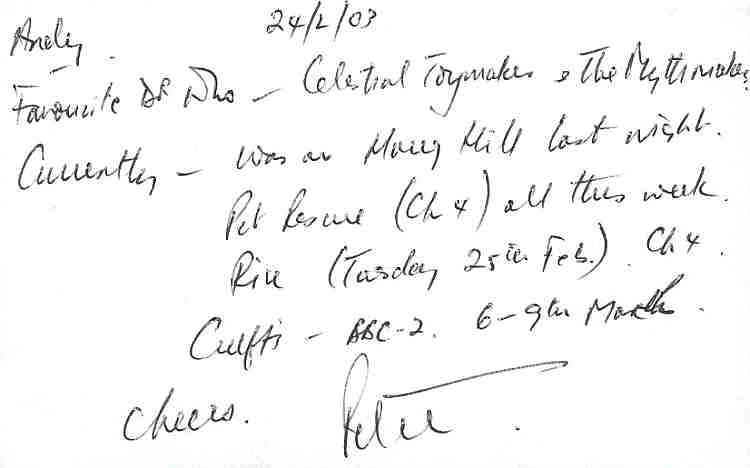 24/2/03
Andy.
Favourite DR Who – Celestial Toymaker & The Mythmakers
Currently – Was on Harry Hill last night.
Pet Rescue (Ch 4) all this week.
(Tuesday 25th Feb.). Ch 4.
Crufts – BBC-2. 6–9th March.
Cheers. Peter.